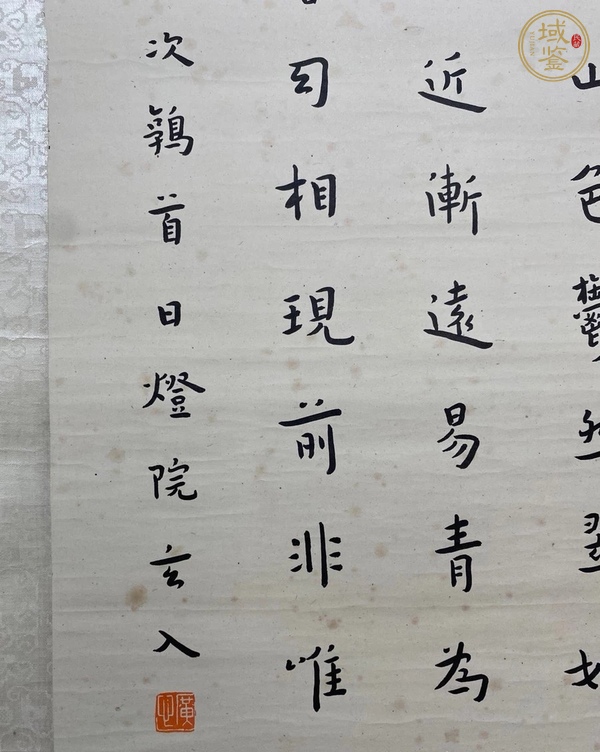 山色鬱然
近漸遠易青為
相現前非唯
次鶉首日燈院玄入
域鉴